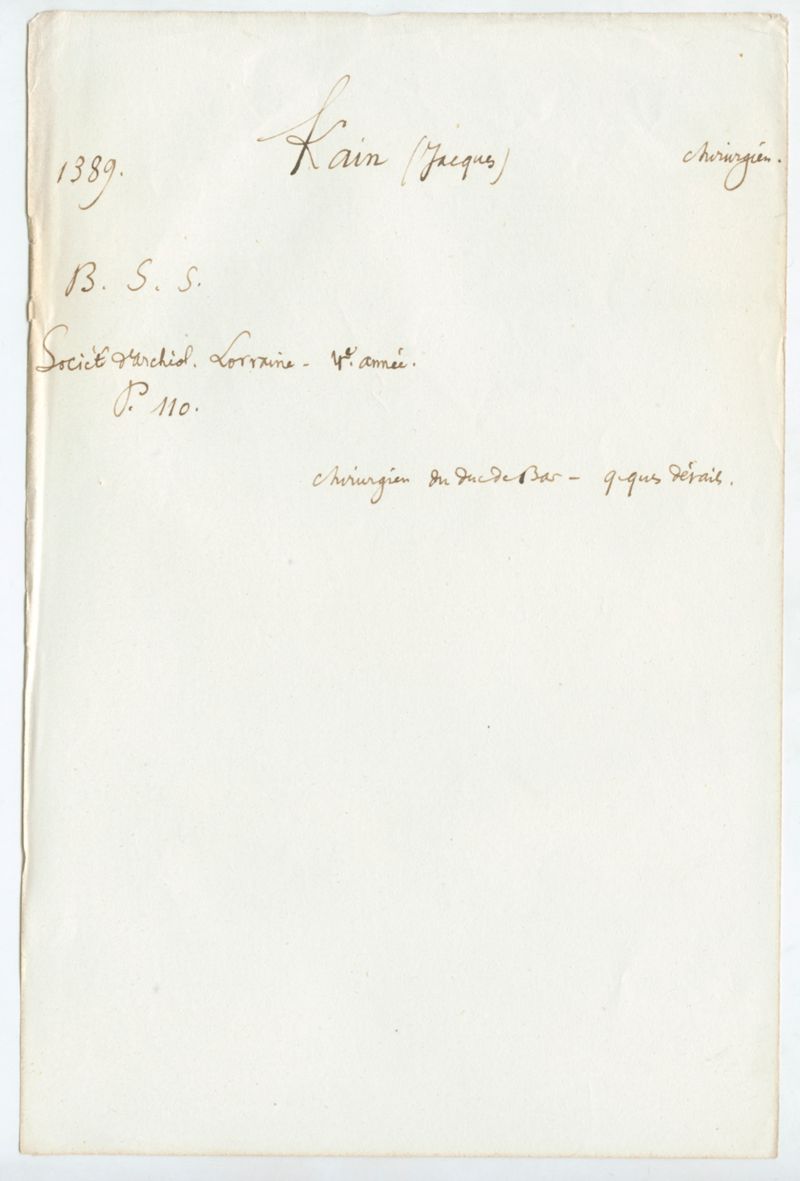 1389. Kain (Jacques) chirurgien.
B. S. S.
Sociét d'archéol. Lorraine - 4e. année.
P. 110.
chirurgien du duc de Bar - q-ques détails.